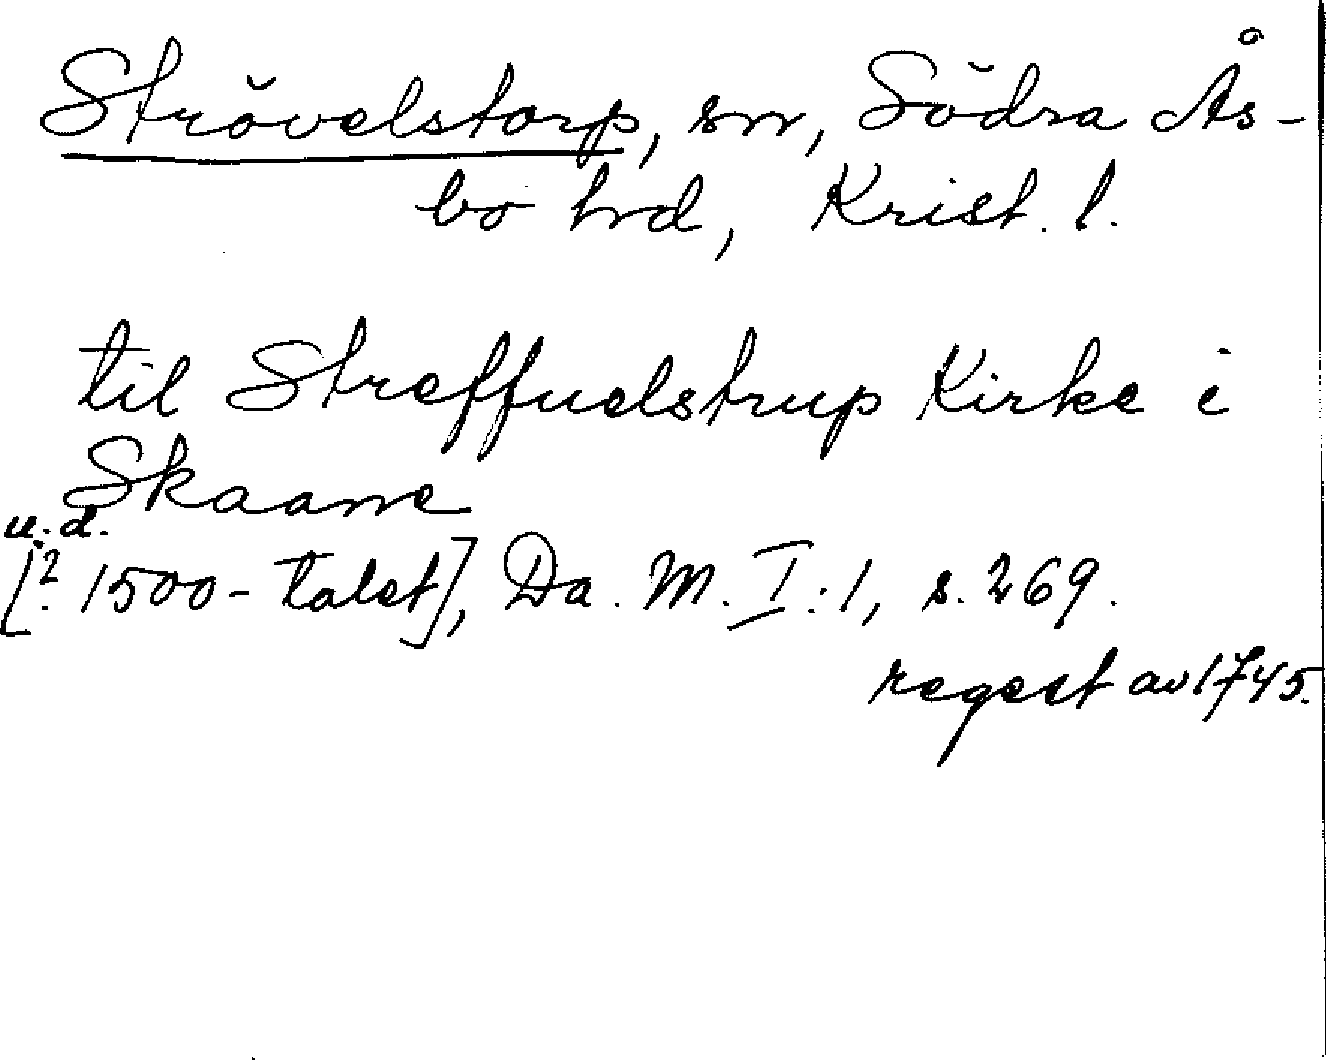 Strövelstorp, sn, Södra Ås-
bo hrd, Krist. l.
til Streffuelstrup Kirke i
Skaane
u.d.
[? 1500-talet], Da. M. I:1, s. 269.
regest av 1745.